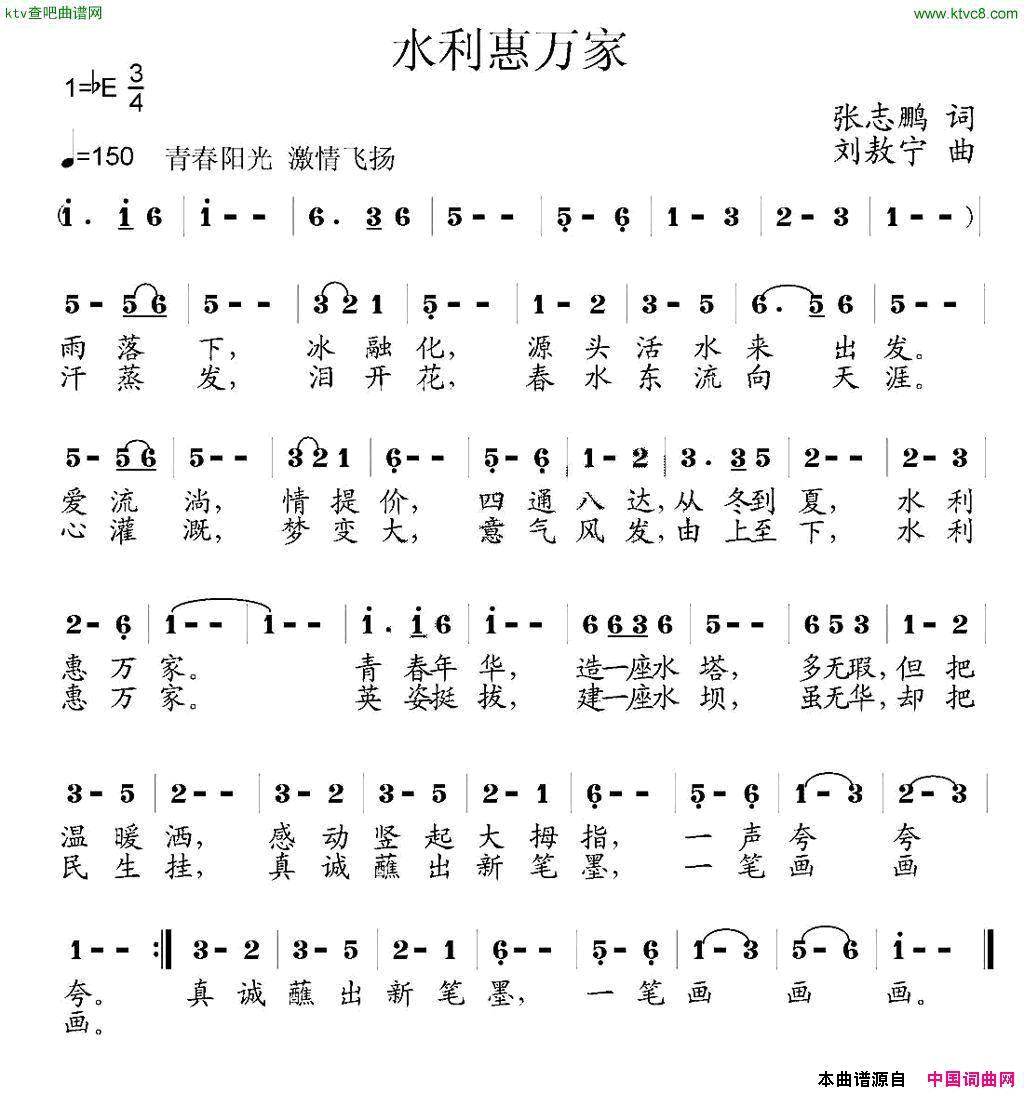 ktv查吧曲谱网
www.ktvc8.com
水利惠万家
1=♭E 3/4
张志鹏 词
♩=150 青春阳光 激情飞扬
刘敖宁 曲
(i . i 6 | i - - | 6 . 3 6 | 5 - - | 5̣ - 6̣ | 1 - 3 | 2 - 3 | 1 - - )|
5 - 5 6 | 5 - - | 3 2 1 | 5̣ - - | 1 - 2 | 3 - 5 | 6 . 5 6 | 5 - - |
雨落下,冰融化,源头活水来出发。
汗蒸发,泪开花,春水东流向天涯。
5 - 5 6 | 5 - - | 3 2 1 | 6̣ - - | 5̣ - 6̣ | 1 - 2 | 3 . 3 5 | 2 - - | 2 - 3 |
爱流淌,情提价,四通八达,从冬到夏,水利
心灌溉,梦变大,意气风发,由上至下,水利
2 - 6̣ | 1 - - | 1 - - | i . i 6 | i - - | 6 6 3 6 | 5 - - | 6 5 3 | 1 - 2 |
惠万家。青春年华,造一座水塔,多无瑕,但把
惠万家。英姿挺拔,建一座水坝,虽无华,却把
3 - 5 | 2 - - | 3 - 2 | 3 - 5 | 2 - 1 | 6̣ - - | 5̣ - 6̣ | 1 - 3 | 2 - 3 |
温暖洒,感动竖起大拇指,一声夸夸
民生挂,真诚蘸出新笔墨,一笔画画
1 - - :| 3 - 2 | 3 - 5 | 2 - 1 | 6̣ - - | 5̣ - 6̣ | 1 - 3 | 5 - 6 | i - - |
夸。真诚蘸出新笔墨,一笔画画画。
画。
本曲谱源自 中国词曲网